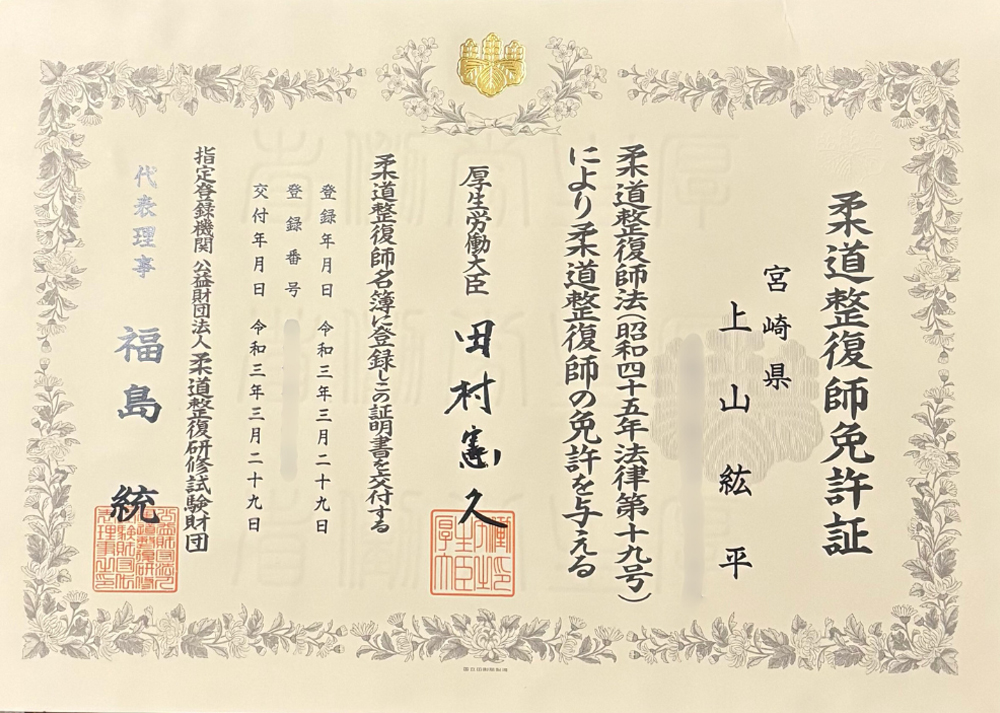 柔道整復師免許証
宮崎県
上山紘平
柔道整復師法(昭和四十五年法律第十九号)
により柔道整復師の免許を与える
厚生労働大臣 田村憲久
柔道整復師名簿に登録しこの証明書を交付する
登録年月日 令和三年三月二十九日
登録番号
交付年月日 令和三年三月二十九日
指定登録機関 公益財団法人 柔道整復研修試験財団
代表理事 福島統